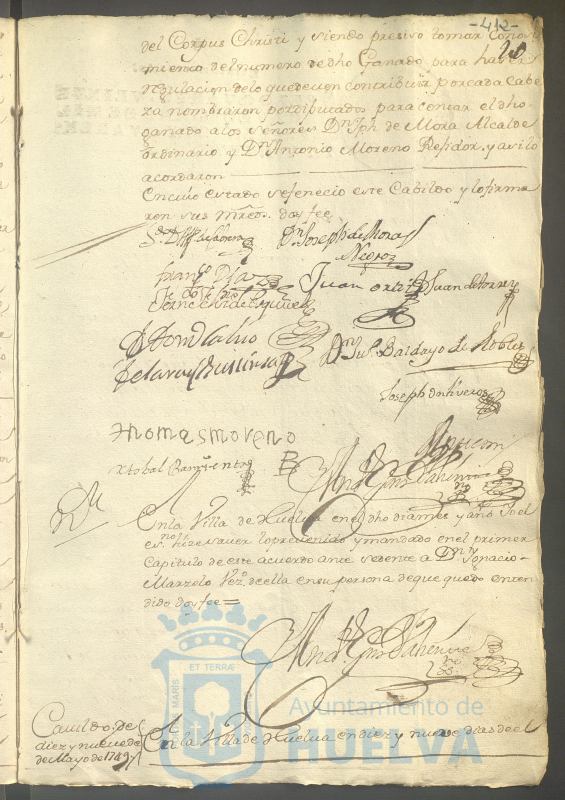 -412-
del Corpus Christi y siendo presiso tomar conosi
miento del numero de dho Ganado para hacer
regulacion delo quedeven contribuir porcada Cabe
za nombraron pordiputados para contar el dho
ganado alos señores Dn Jph de Mora Alcalde
ordinario y Dn Antonio Moreno Rejidor, y asilo
acordaron
En cuio estado sefenecio este Cabildo y lo firma
ron sus mrcds. doyfee
Dn Joseph de Mora
Negron
Franco Diaz
Juan Ortiz
Juan de Torres
Dn Jul Bardayo de Robles
Joseph Ontiveros
Thomas moreno
Xtobal Barrientos
En la Villa de Huelva en el dho dia mes y año Yo el
esno hize saver lo prevenido y mandado en el primer
Capitulo de este acuerdo ante sedente a Dn Ignacio
Marzelo Vezo de ella en su persona de que quedo enten
dido doyfee =
ET TERRÆ
MARIS
Ayuntamiento de
HUELVA
Cavildo de
diez y nueve de
de Mayo de 1749
En la Villa de Huelva en diez y nueve dias de el